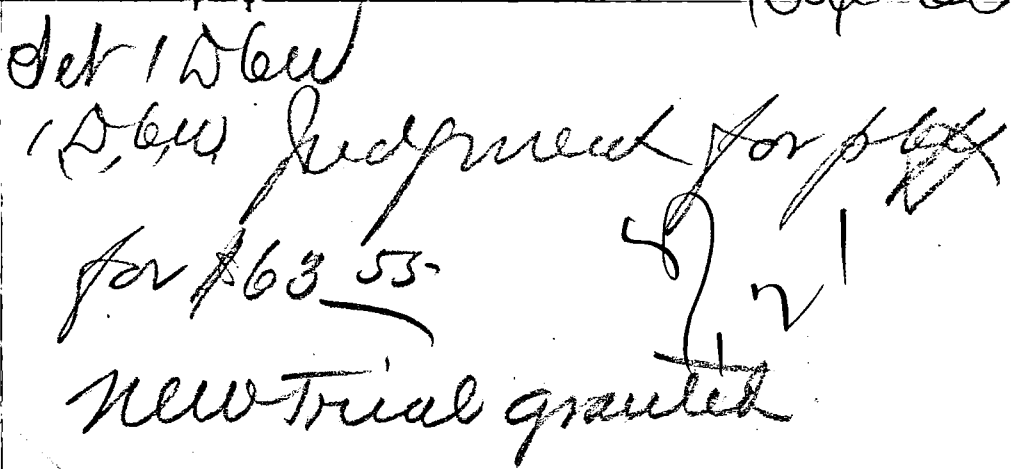 Set 1 D6W
1 D,6,W, Judgment for plff
for $63 55
21
New Trial granted